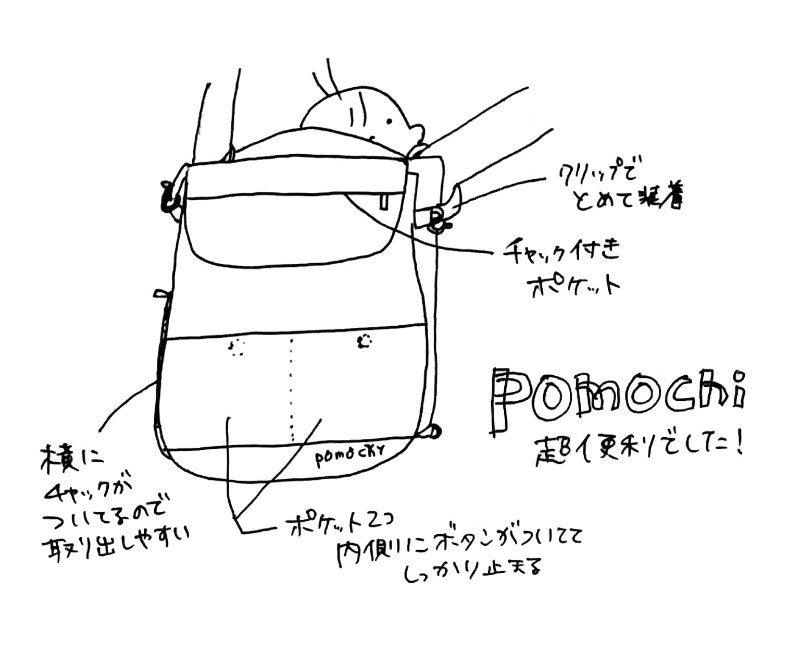 クリップで
とめて装着
チャック付き
ポケット
pomochi
超便利でした!
pomocky
横に
チャックが
ついてるので
取り出しやすい
ポケット2つ
内側にボタンがついてて
しっかり止まる